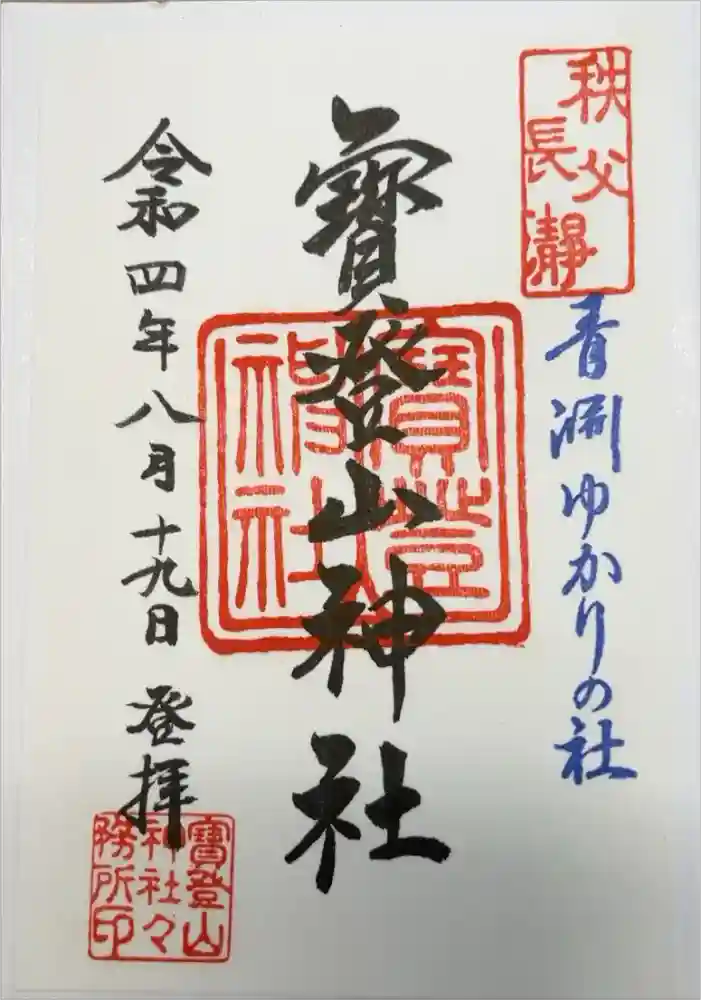 秩父
長瀞
青淵ゆかりの社
寳登山神社
寳登
神社
令和四年八月十九日 登拝
寳登山
神社々
務所印